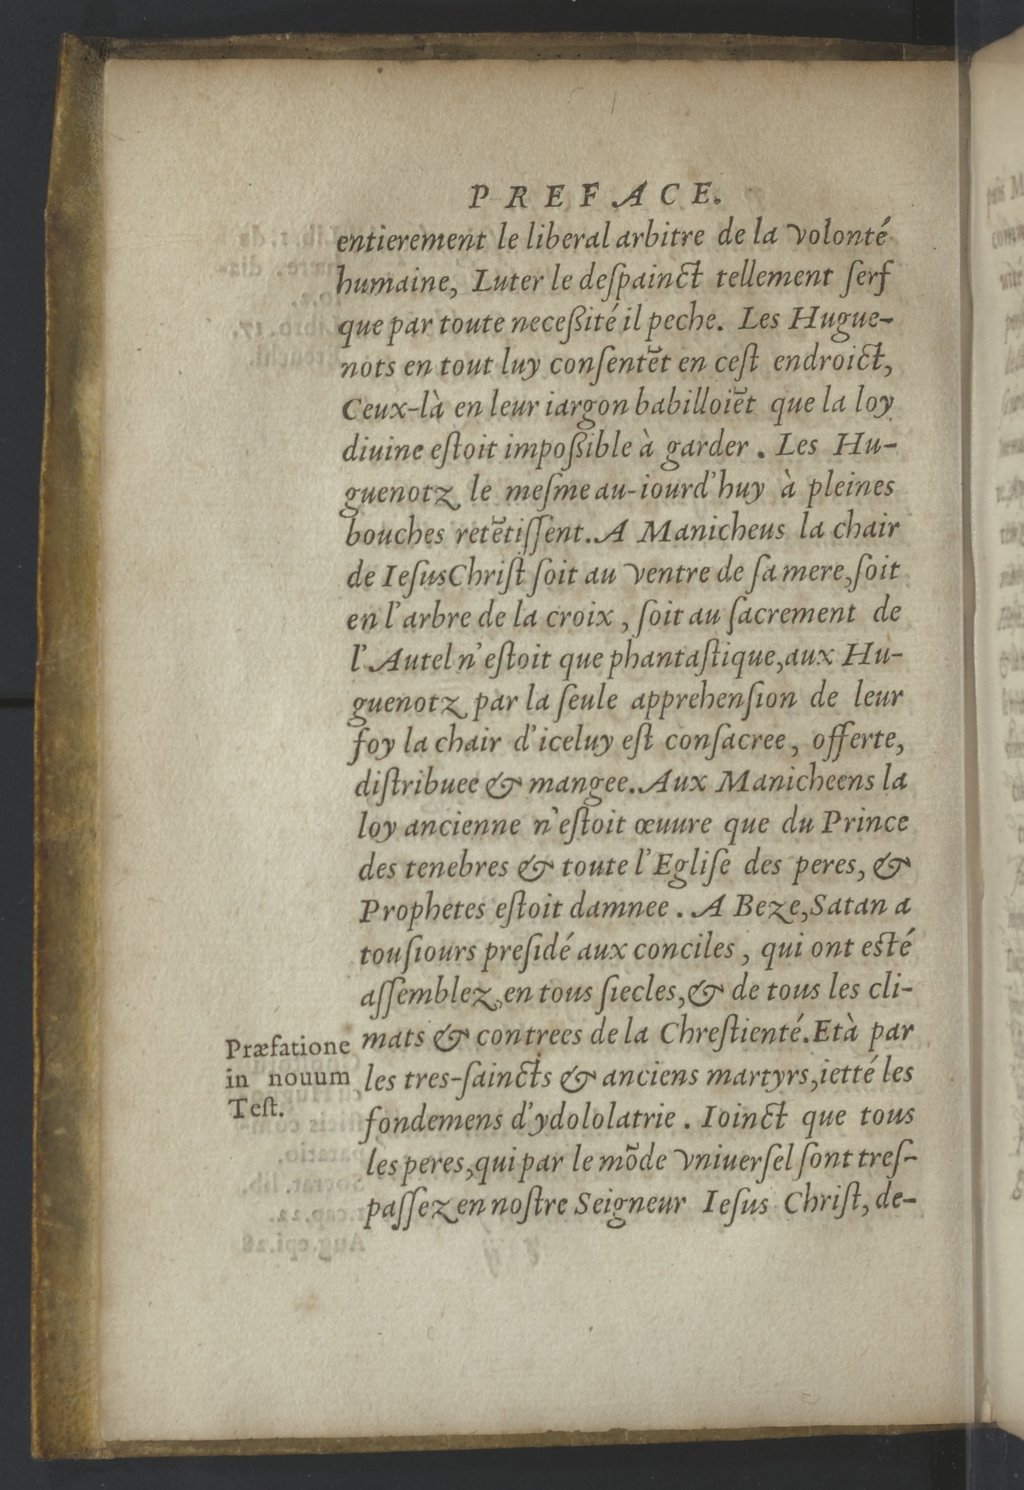 PREFACE.
entierement le liberal arbitre de la volonté
humaine, Luter le deſpainct tellement ſerf
que par toute neceßité il peche. Les Hugue-
nots en tout luy conſentẽt en ceſt endroict,
Ceux-là en leur iargon babilloiẽt que la loy
diuine eſtoit impoßible à garder. Les Hu-
guenotz le meſme au-iourd'huy à pleines
bouches retẽtiſſent. A Manicheus la chair
de IeſusChriſt ſoit au ventre de ſa mere, ſoit
en l'arbre de la croix, ſoit au ſacrement de
l'Autel n'eſtoit que phantaſtique, aux Hu-
guenotz par la ſeule apprehenſion de leur
foy la chair d'iceluy eſt conſacree, offerte,
diſtribuee & mangee. Aux Manicheens la
loy ancienne n'eſtoit œuure que du Prince
des tenebres & toute l'Egliſe des peres, &
Prophetes eſtoit damnee. A Beze, Satan a
touſiours preſidé aux conciles, qui ont eſté
aſſemblez, en tous ſiecles, & de tous les cli-
mats & contrees de la Chreſtienté. Età par
les tres-ſaincts & anciens martyrs, ietté les
fondemens d'ydololatrie. Ioinct que tous
les peres, qui par le mõde vniuerſel ſont treſ-
paſſez en noſtre Seigneur Ieſus Chriſt, de-
Præfatione
in nouum
Teſt.